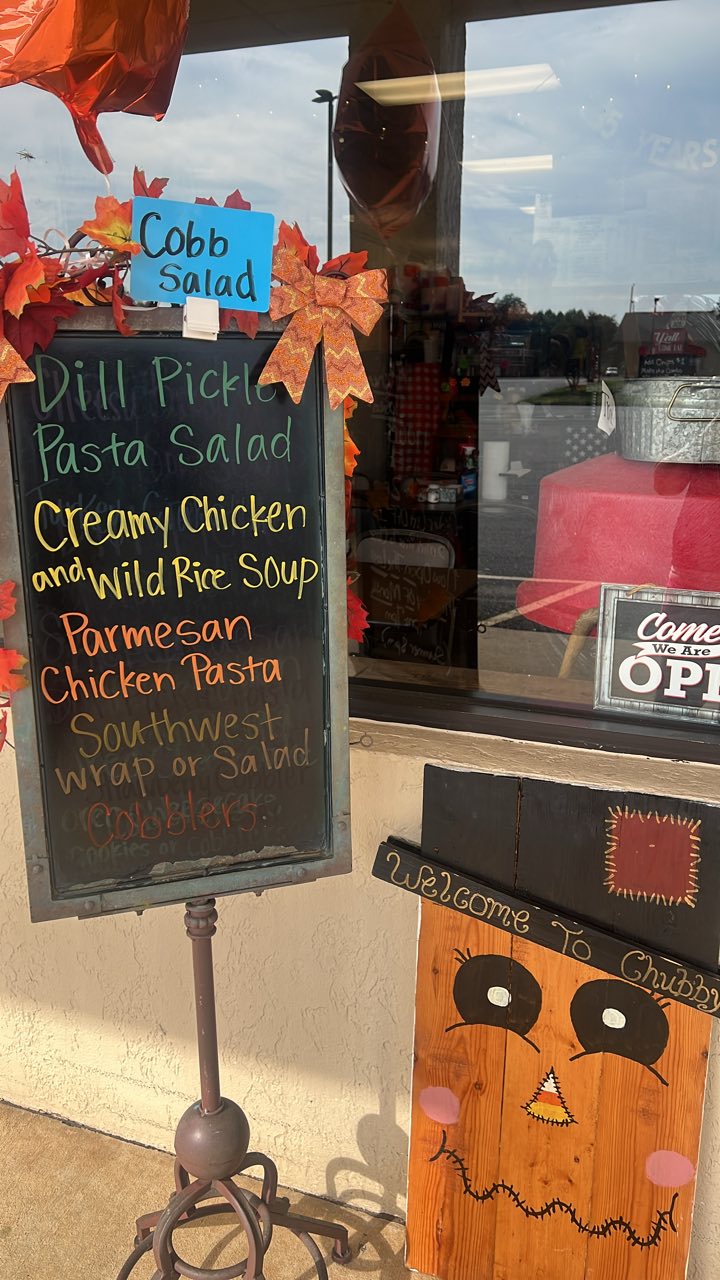 Cobb
Salad
Dill Pickle
Pasta Salad
Creamy Chicken
and Wild Rice Soup
Parmesan
Chicken Pasta
Southwest
wrap or Salad
Cobblers
YEARS
Y'all
Come
We Are
OPE
Welcome To Chubby